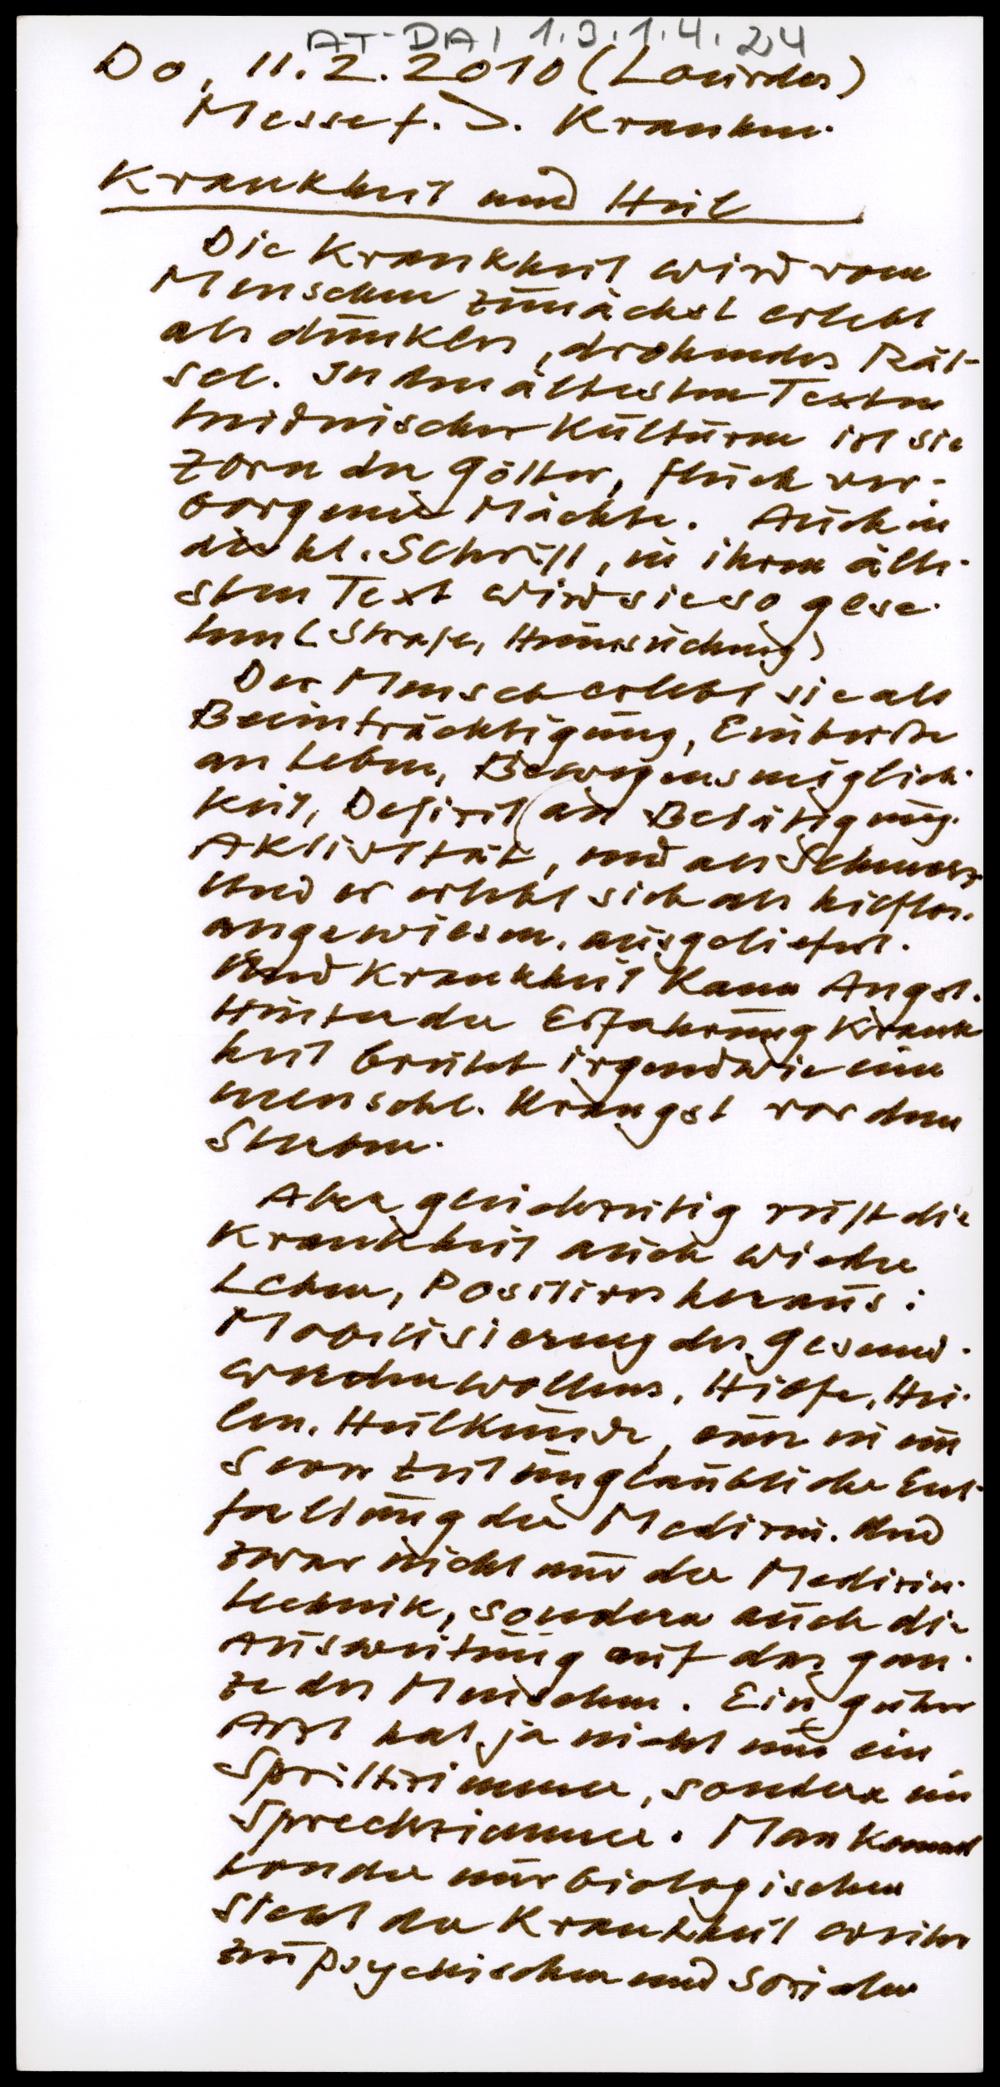 AT-DAI 1.3.1.4.24
Do, 11.2.2010 (Lourdes)
Messe f. d. Kranken.
Krankheit und Heil
Die Krankheit wird vom
Menschen zunächst erlebt
als dunkles, drohendes Rät-
sel. In den ältesten Texten
heidnischer Kulturen ist sie
Zorn der Götter, Fluch ver-
borgener Mächte. Auch in
der hl. Schrift, in ihrem älte-
sten Text wird sie so gese-
hen (Strafe, Heimsuchung)
Der Mensch erlebt sie als
Beeinträchtigung, Einbuße
an Leben, Bewegungsmöglich-
keit, Defizit an Betätigung.
Aktivität, und als Schmerz
Und er erlebt sich als hilflos.
angewiesen. ausgeliefert.
Und Krankheit kann Angst.
Hinter der Erfahrung Krank
heit brütet irgendwie eine
menschl. Urangst vor dem
Sterben.
Aber gleichzeitig ruft die
Krankheit auch wieder
Leben, Positives heraus:
Mobilisierung des gesund-
werdenwollens, Hilfe, Hei-
len. Heilkunde, eine in un
serer Zeit unglaubliche Ent-
faltung der Medizin. Und
zwar nicht nur der Medizin-
technik, sondern auch die
Ausweitung auf das gan-
ze des Menschen. Ein guter
Arzt hat ja nicht nur ein
Spritzzimmer, sondern ein
Sprechzimmer. Man kommt
von der nur biologischen
Sicht der Krankheit weiter
zur psychischen und sozialen